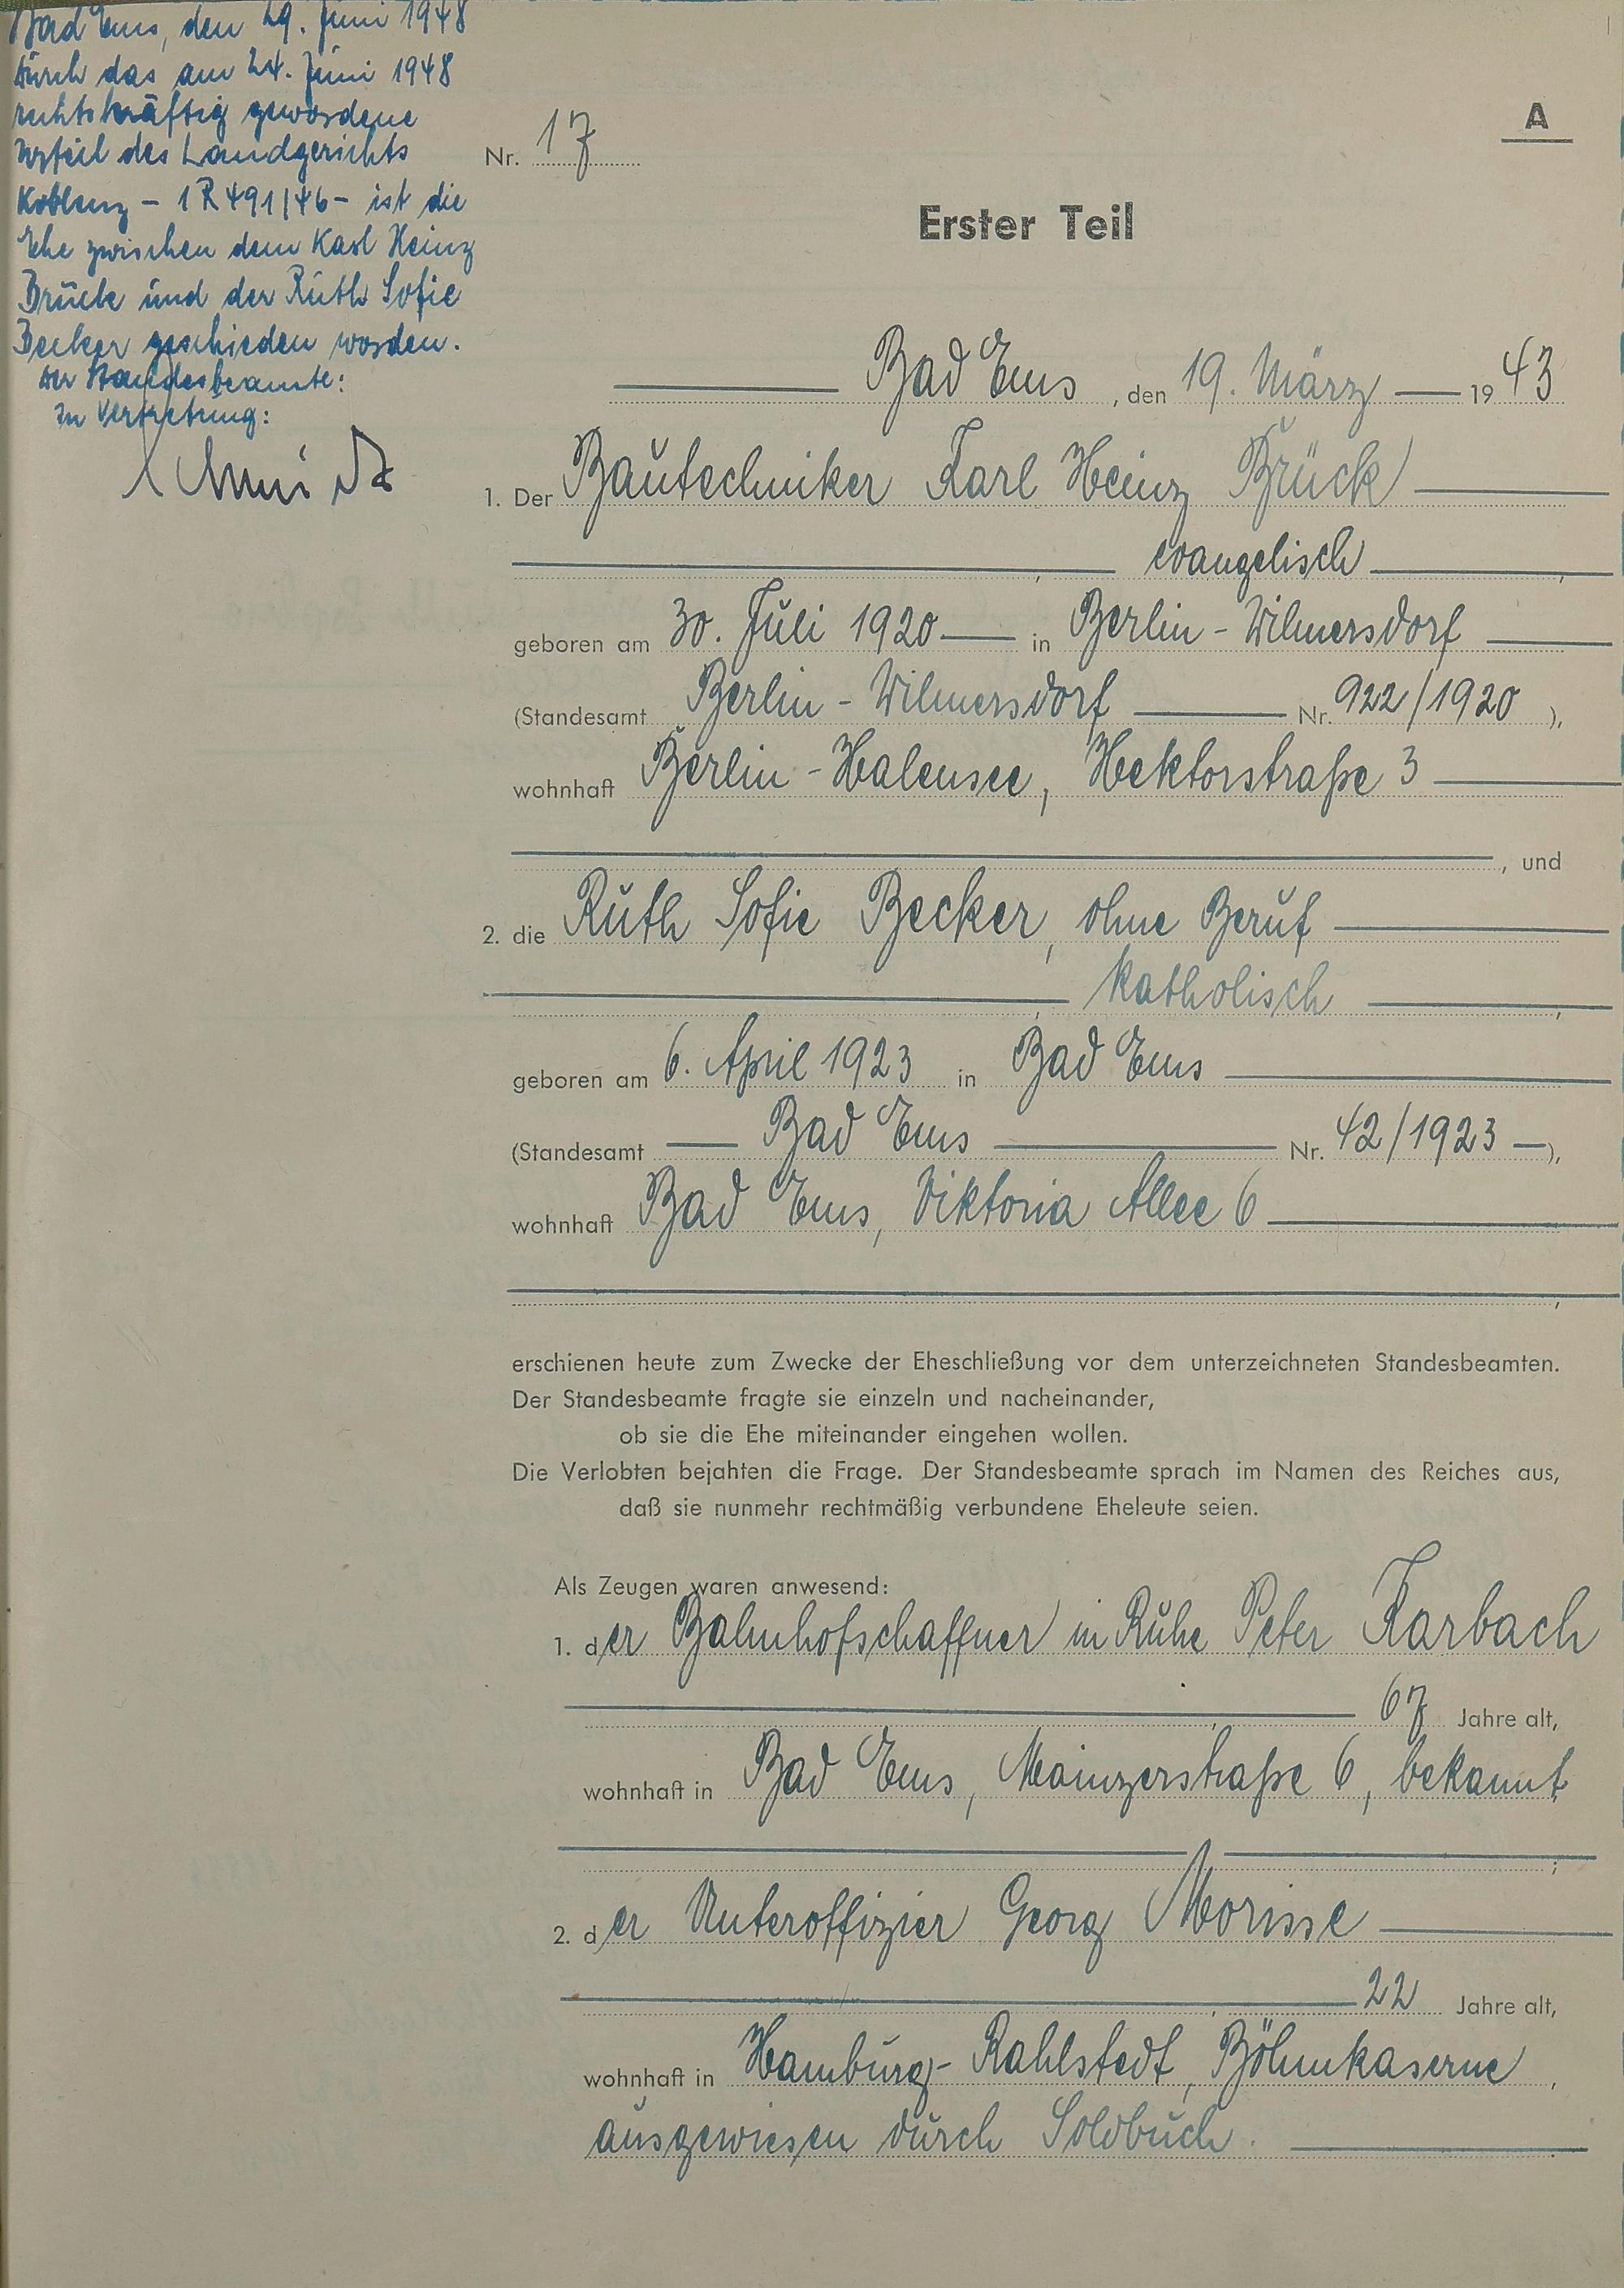 Bad Ems, den 29. Juni 1948
Durch das am 24. Juni 1948
rechtskräftig gewordene
Urteil des Landgerichts
Koblenz - 1 R 491/46 - ist die
Ehe zwischen dem Karl Heinz
Brück und der Ruth Sofie
Becker geschieden worden.
Der Standesbeamte:
In Vertretung:
A
Nr. 17
Erster Teil
Bad Ems, den 19. März 1943
1. Der Bautechniker Karl Heinz Brück
, evangelisch,
geboren am 30. Juli 1920 in Berlin-Wilmersdorf
(Standesamt Berlin-Wilmersdorf Nr. 922/1920),
wohnhaft Berlin-Halensee, Hektorstraße 3
, und
2. die Ruth Sofie Becker, ohne Beruf
, katholisch,
geboren am 6. April 1923 in Bad Ems
(Standesamt Bad Ems Nr. 42/1923),
wohnhaft Bad Ems, Viktoria Allee 6
,
erschienen heute zum Zwecke der Eheschließung vor dem unterzeichneten Standesbeamten.
Der Standesbeamte fragte sie einzeln und nacheinander,
ob sie die Ehe miteinander eingehen wollen.
Die Verlobten bejahten die Frage. Der Standesbeamte sprach im Namen des Reiches aus,
daß sie nunmehr rechtmäßig verbundene Eheleute seien.
Als Zeugen waren anwesend:
1. der Bahnhofschaffner in Ruhe Peter Karbach
, 67 Jahre alt,
wohnhaft in Bad Ems, Mainzerstraße 6, bekannt
;
2. der Unteroffizier Georg Morisse
, 22 Jahre alt,
wohnhaft in Hamburg-Rahlstedt, Böhmkaserne,
ausgewiesen durch Soldbuch.